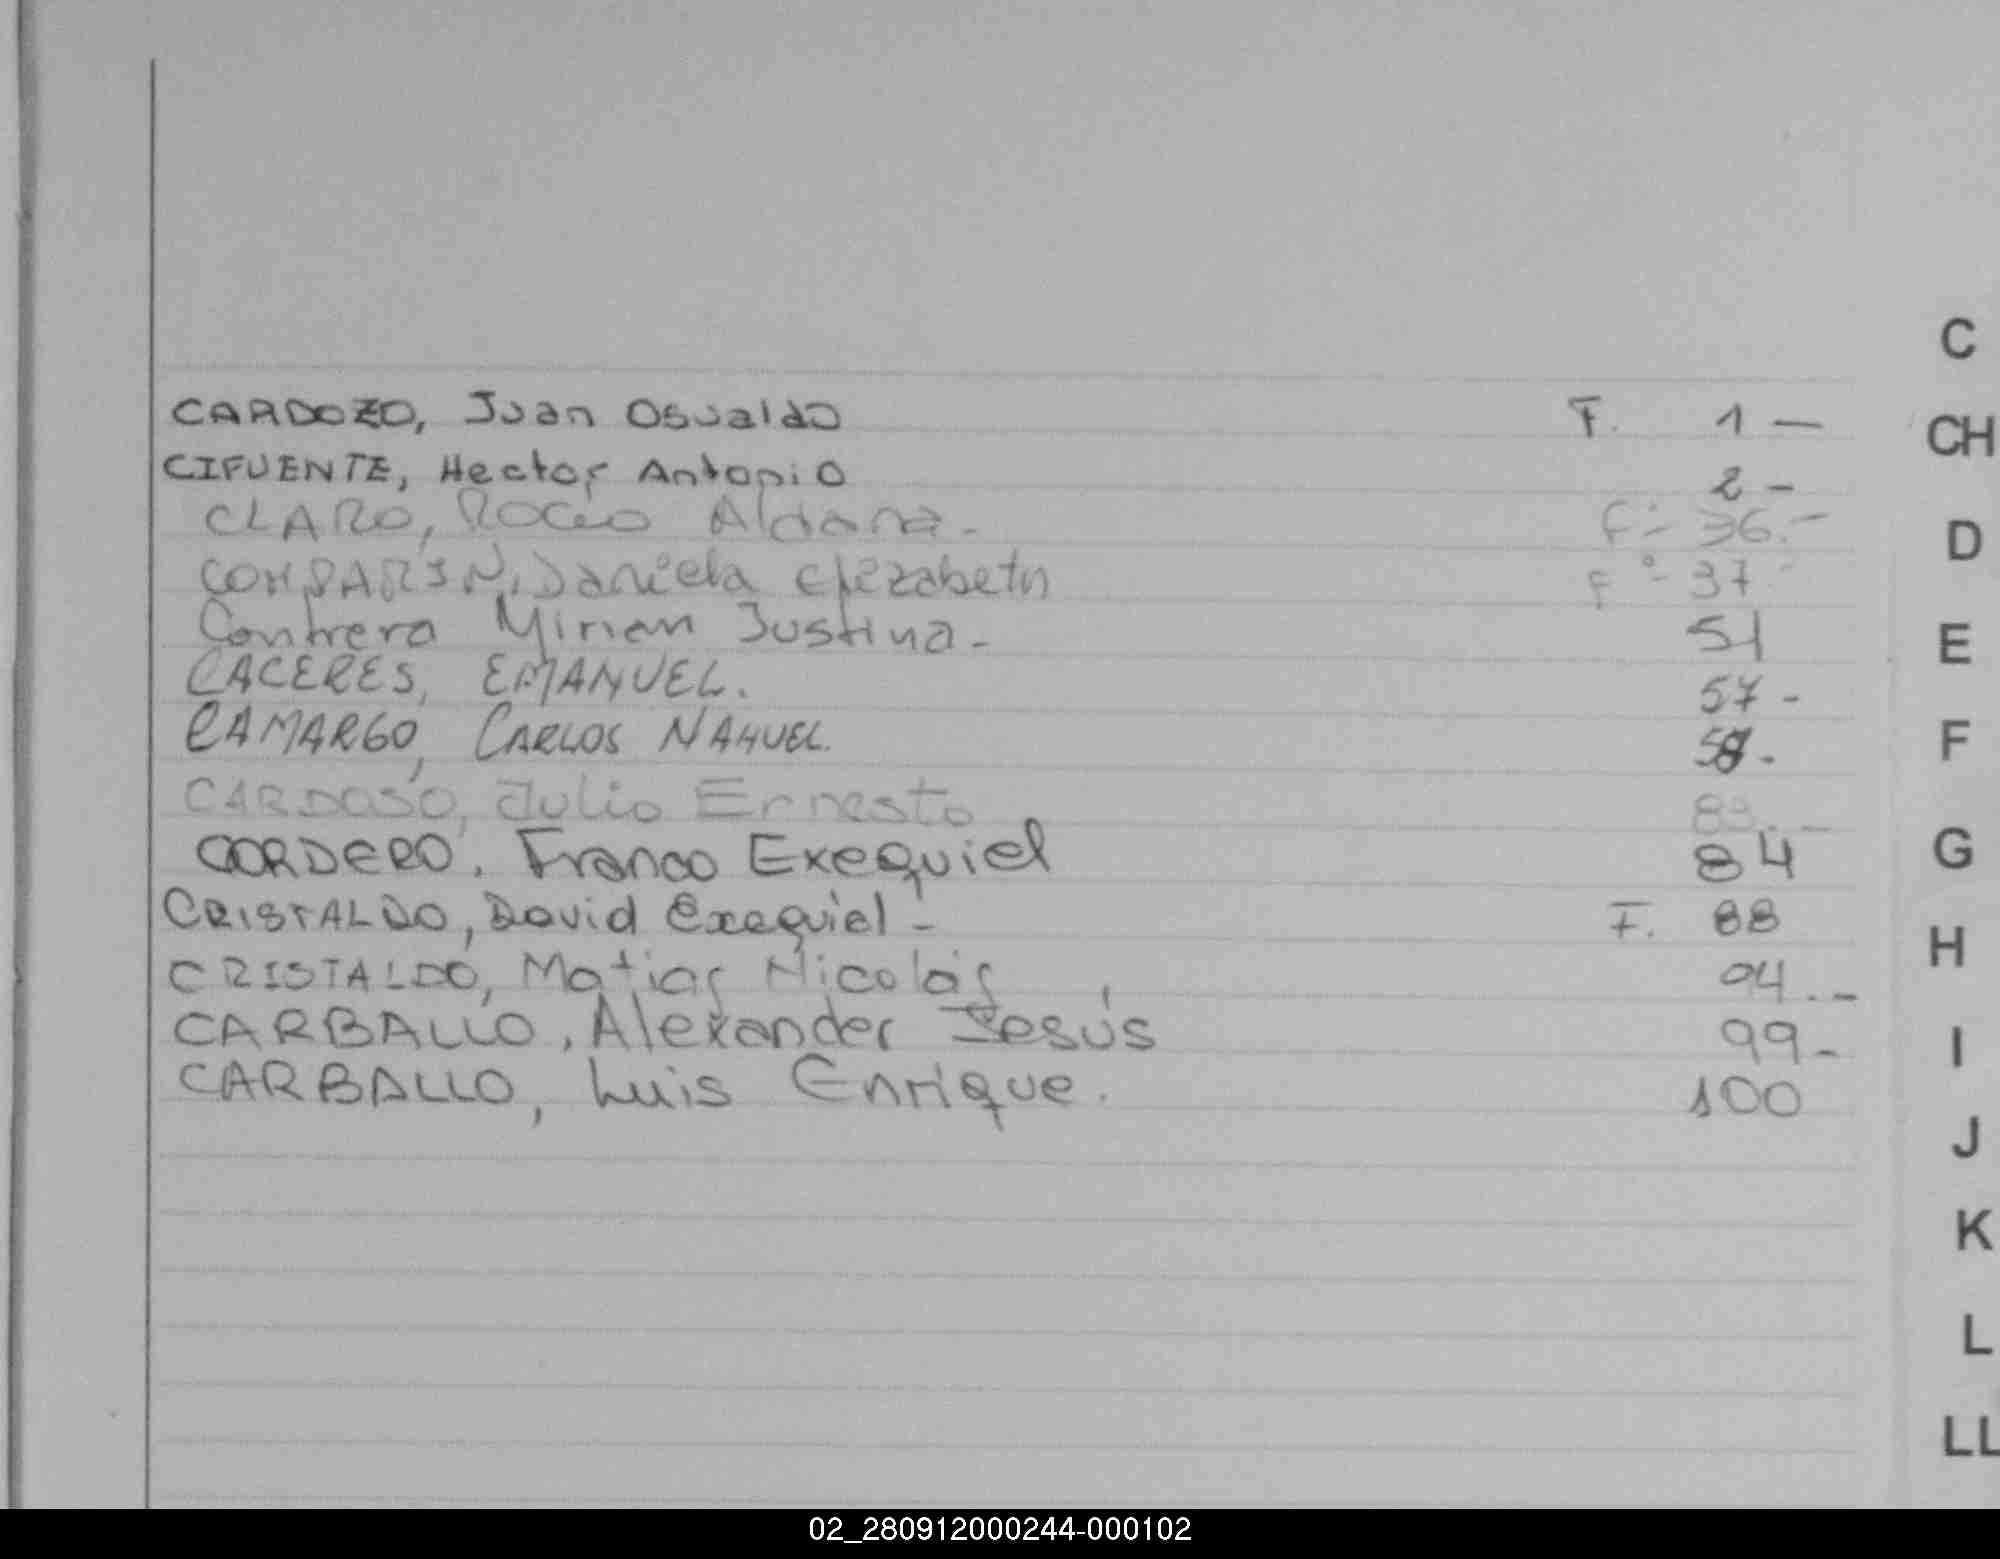 C
CARDOZO, Juan Osvaldo F. 1 —
CH
CIFUENTE, Hector Antonio 2 -
CLARO, Rocio Aldana.- F°- 36.-
D
COMPARIN, Daniela Elizabeth F°- 37.-
Contrera Mirian Justina - 51
E
CACERES, EMANUEL. 57 -
CAMARGO, CARLOS NAHUEL. 58.
F
CARDOSO, Julio Ernesto 83.-
CORDERO, Franco Exequiel 84
G
CRISTALDO, David Exequiel - F. 88
H
CRISTALDO, Matias Nicolás 94.-
CARBALLO, Alexander Jesús 99-
I
CARBALLO, Luis Enrique. 100
J
K
L
LL
02_280912000244-000102